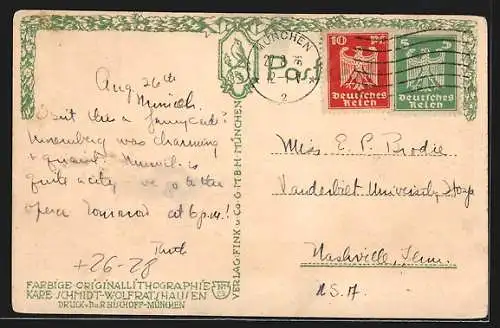 Aug. 26th
Munich.
Isn't this a funny card?
Nuremberg was charming
& quaint. Munich is
quite a city. We go to the
opera tomorrow at 6 p.m.!
Ruth
+26-28
FARBIGE ORIGINALLITHOGRAPHIE
KARE SCHMIDT-WOLFRATSHAUSEN
DRUCK BISCHOFF-MÜNCHEN
VERLAG FINK u Co G.M.B.H. MÜNCHEN
Post
MÜNCHEN
2
10 Pf.
Deutsches
Reich
5
Deutsches
Reich
Miss E. P. Brodie
Vanderbilt University Hosp
Nashville, Tenn.
U.S.A.